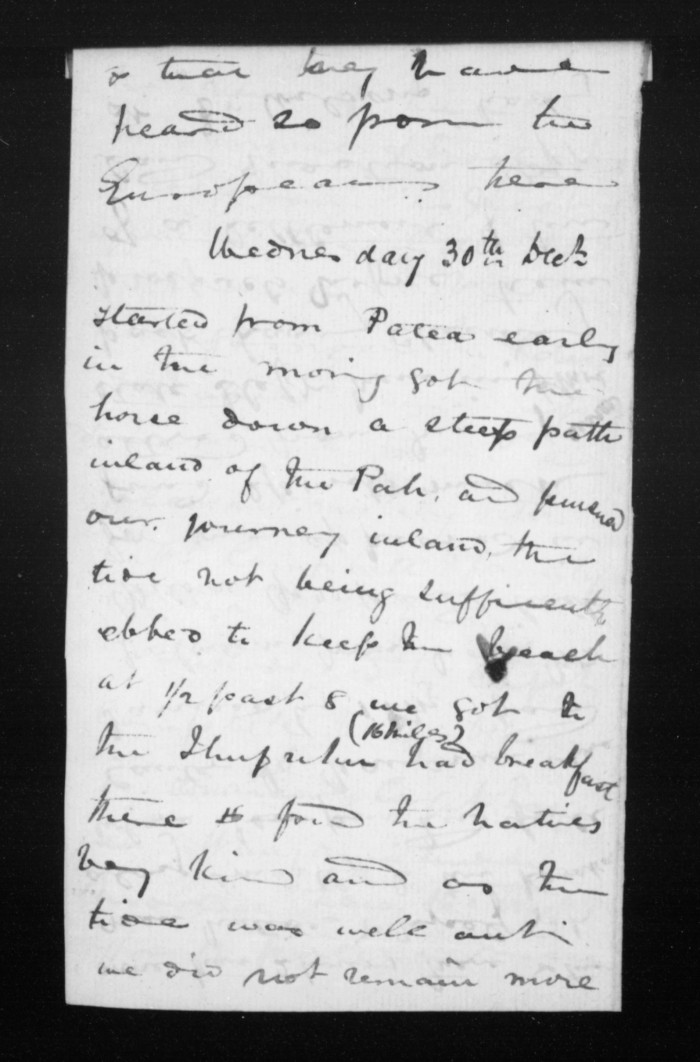 & that they have
heard so from the
Europeans here
Wednesday 30th Decb
started from Patea early
in the morng got the
horse down a steep path
inland of the Pah, and pursued
our journey inland, the
tide not being sufficiently
ebbed to keep the beach
at 1/2 past 8 we got to
(16 Miles)
the had breakfast
there & found the Natives
very kind and as the
tide was well out
we did not remain more